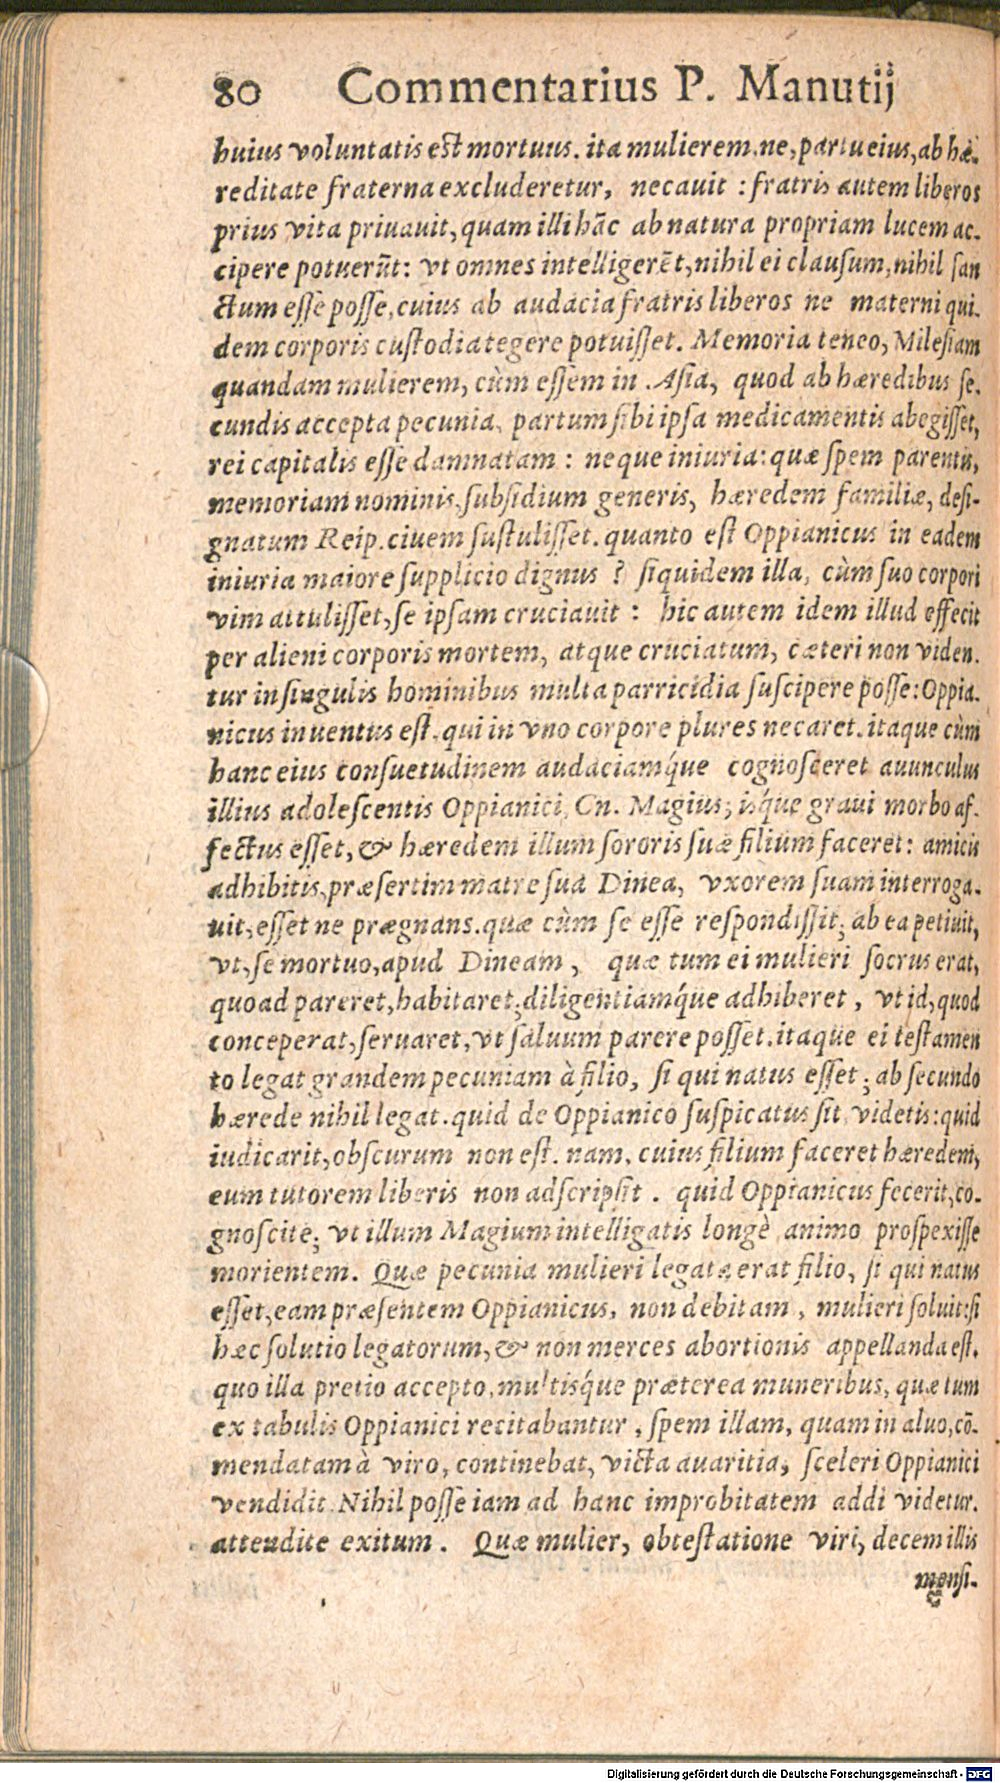 80 Commentarius P. Manutij
huius voluntatis est mortuus. ita mulierem, ne, partu eius, ab hæ-
reditate fraterna excluderetur, necauit : fratris autem liberos
prius vita priuauit, quam illi hāc ab natura propriam lucem ac-
cipere potuerūt: vt omnes intelligerēt, nihil ei clausum, nihil san
ctum esse posse, cuius ab audacia fratris liberos ne materni qui-
dem corporis custodia tegere potuisset. Memoria teneo, Milesiam
quandam mulierem, cùm essem in Asia, quod ab hæredibus se-
cundis accepta pecunia, partum sibi ipsa medicamentis abegisset,
rei capitalis esse damnatam : neque iniuria: quæ spem parentis,
memoriam nominis, subsidium generis, hæredem familiæ, desi-
gnatum Reip. ciuem sustulisset. quanto est Oppianicus in eadem
iniuria maiore supplicio dignus ? siquidem illa, cùm suo corpori
vim attulisset, se ipsam cruciauit : hic autem idem illud effecit
per alieni corporis mortem, atque cruciatum, cæteri non viden-
tur in singulis hominibus multa parricidia suscipere posse: Oppia-
nicus inuentus est, qui in vno corpore plures necaret. itaque cùm
hanc eius consuetudinem audaciamq́ue cognosceret auunculus
illius adolescentis Oppianici, Cn. Magius, isq́ue graui morbo af-
fectus esset, & hæredem illum sororis suæ filium faceret: amicis
adhibitis, præsertim matre sua Dinea, vxorem suam interroga-
uit, esset ne prægnans. quæ cùm se esse respondissit; ab ea petiuit,
vt, se mortuo, apud Dineam, quæ tum ei mulieri socrus erat,
quoad pareret, habitaret; diligentiamq́ue adhiberet, vt id, quod
conceperat, seruaret, vt saluum parere posset. itaque ei testamen
to legat grandem pecuniam à filio, si qui natus esset; ab secundo
hærede nihil legat. quid de Oppianico suspicatus sit, videtis: quid
iudicarit, obscurum non est. nam, cuius filium faceret hæredem,
eum tutorem liberis non adscripsit. quid Oppianicus fecerit, co-
gnoscite; vt illum Magium intelligatis longè animo prospexisse
morientem. Quæ pecunia mulieri legata erat filio, si qui natus
esset, eam præsentem Oppianicus, non debitam, mulieri soluit: si
hæc solutio legatorum, & non merces abortionis appellanda est.
quo illa pretio accepto, multisq́ue præterea muneribus, quæ tum
ex tabulis Oppianici recitabantur, spem illam, quam in aluo, cō-
mendatam à viro, continebat, victa auaritia, sceleri Oppianici
vendidit. Nihil posse iam ad hanc improbitatem addi videtur.
attendite exitum. Quæ mulier, obtestatione viri, decem illis
mensi-
Digitalisierung gefördert durch die Deutsche Forschungsgemeinschaft - DFG